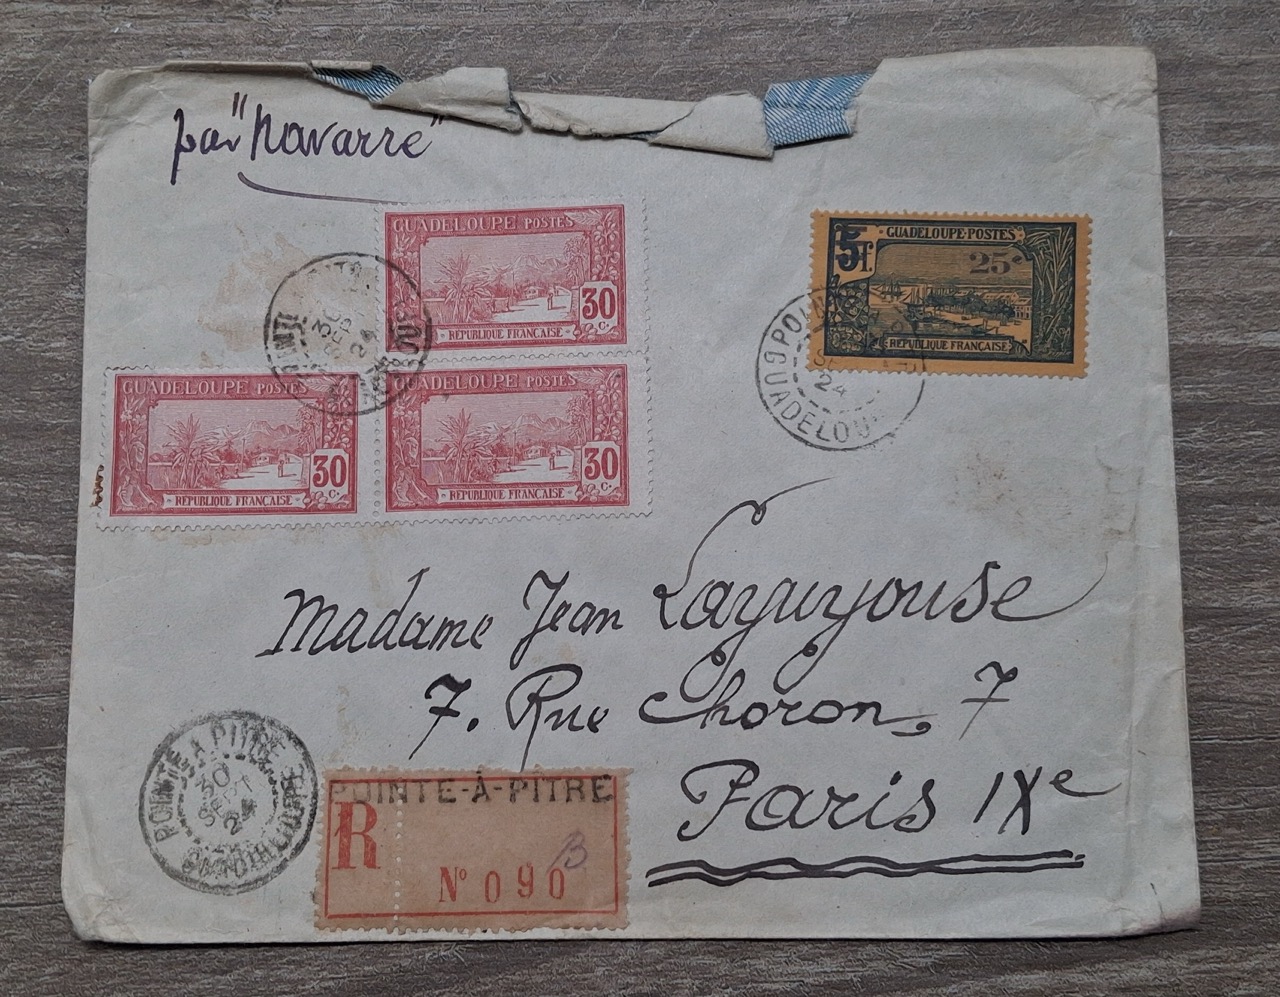 par "Navarre"
GUADELOUPE POSTES
30
c.
RÉPUBLIQUE FRANÇAISE
GUADELOUPE POSTES
30
c.
RÉPUBLIQUE FRANÇAISE
GUADELOUPE POSTES
30
c.
RÉPUBLIQUE FRANÇAISE
GUADELOUPE·POSTES
5f.
25c
RÉPUBLIQUE FRANÇAISE
30
SEPT
24
24
GUADELOU
Madame Jean Laguyouse
7. Rue Choron, 7
Paris IXe
POINTE-A-PITRE
30
SEPT
24
GUADELOUPE
POINTE-À-PITRE
R
B
No 090